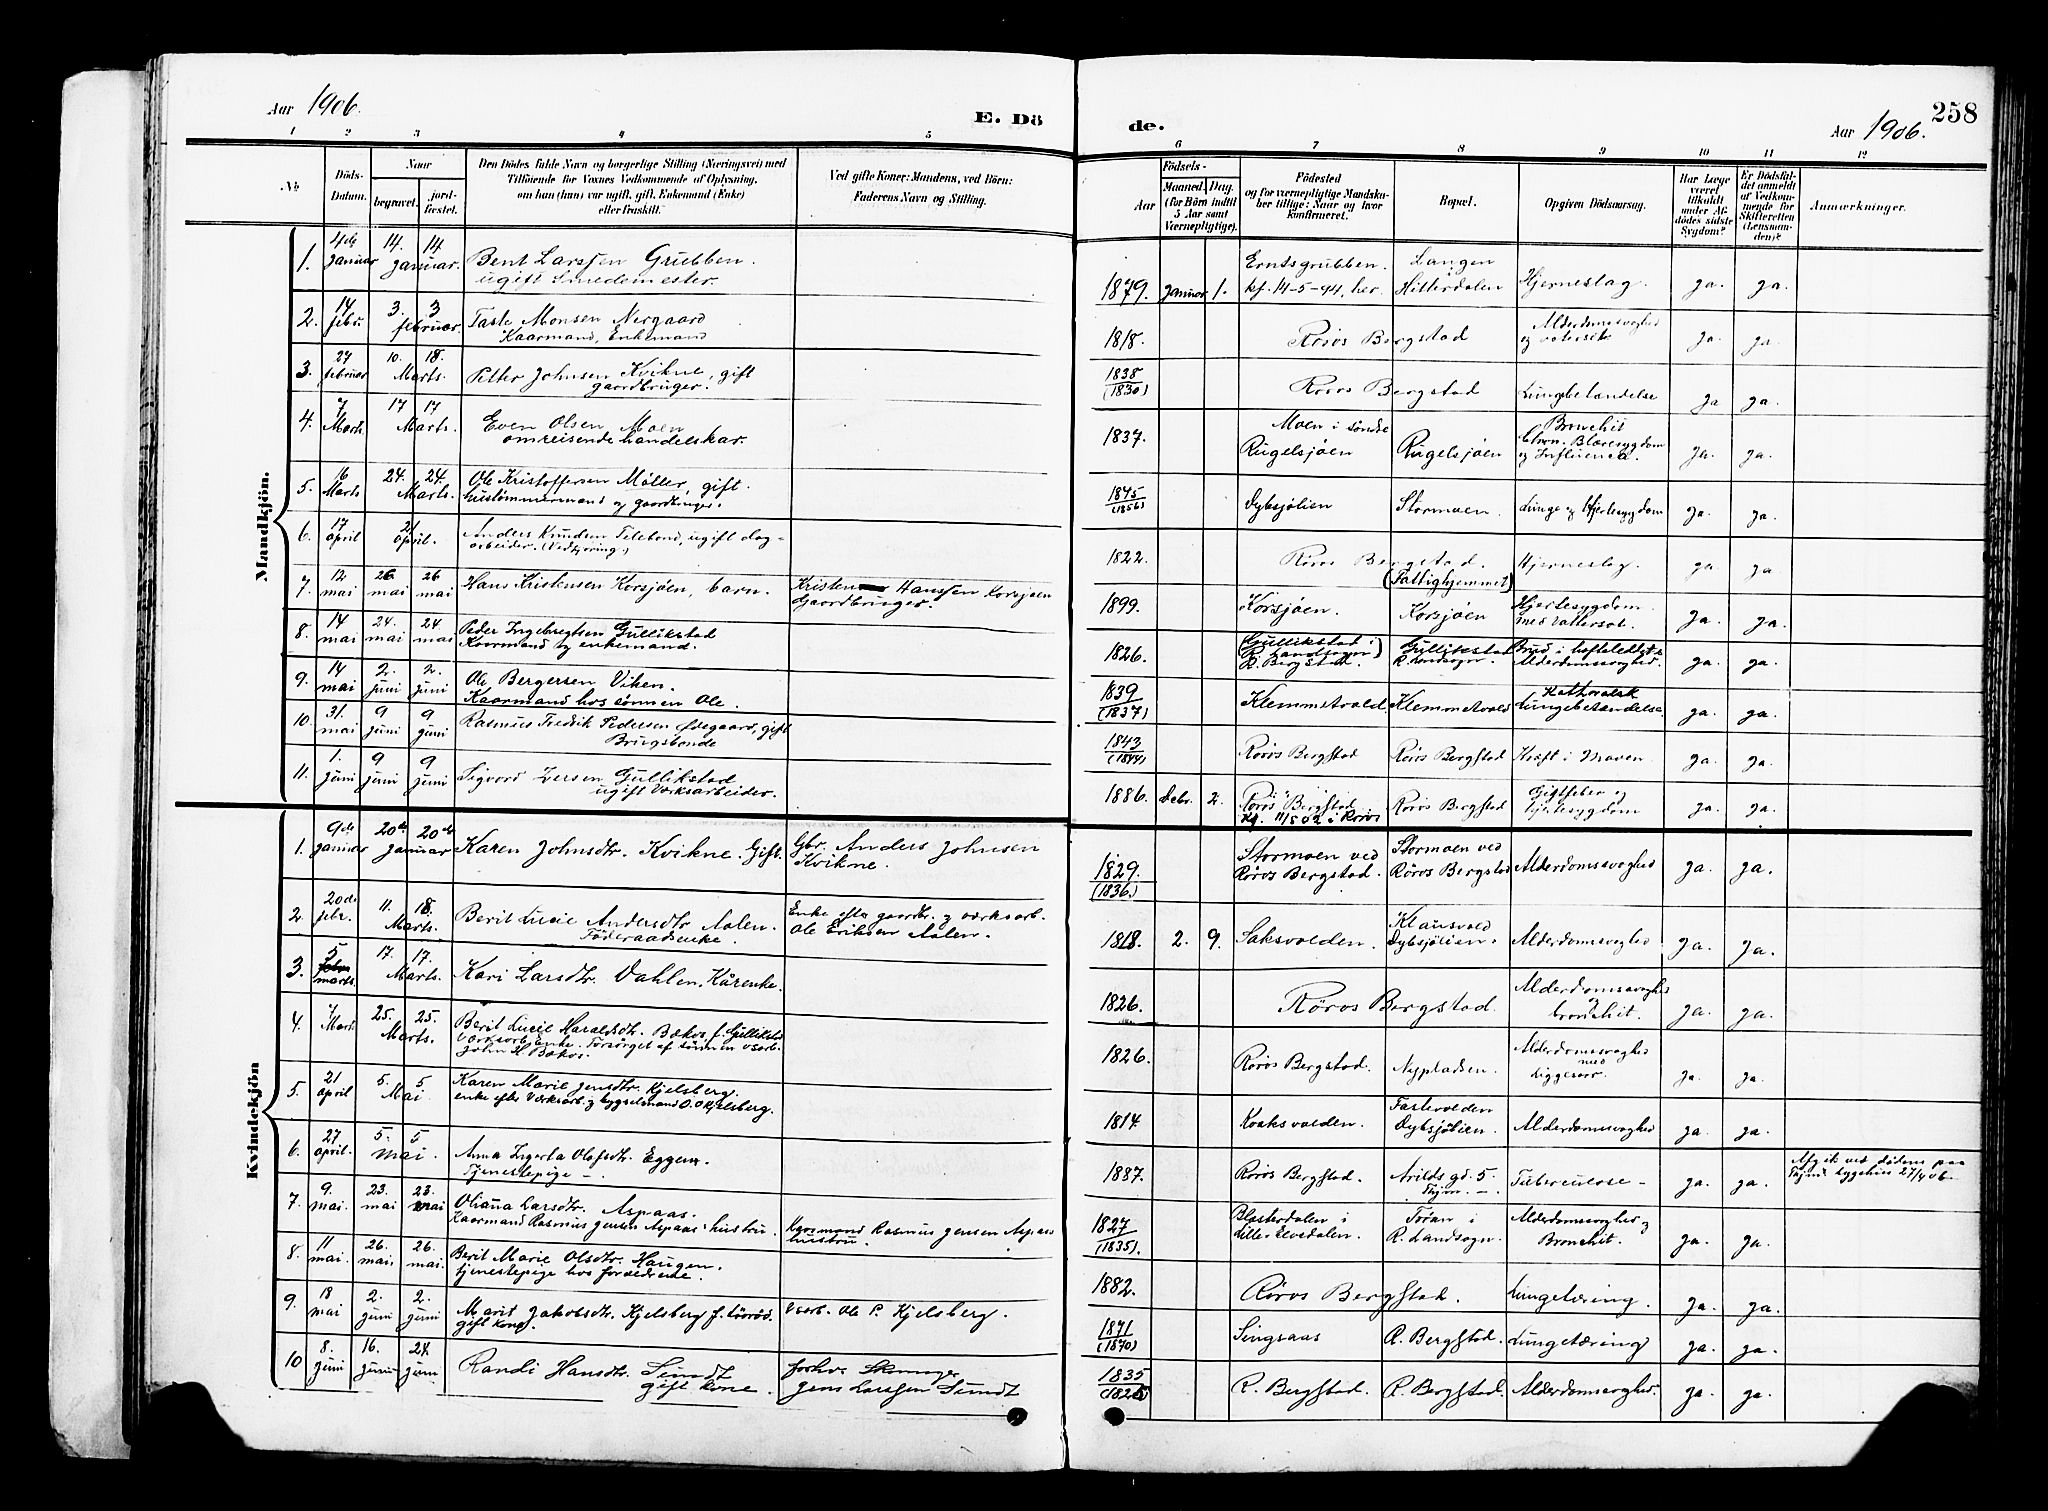 Aar 1906.
E. Dö
de.
Aar 1906. 258
1 2 3 4 5 6 7 8 9 10 11 12
№
Döds-Datum.
Naar
begravet.
jord-fæstet.
Den Dödes fulde Navn og borgerlige Stilling (Næringsvei) med
Tilföiende for Voxnes Vedkommende af Oplysning,
om han (hun) var ugift, gift, Enkemand (Enke)
eller fraskilt.
Ved gifte Koner: Mandens, ved Börn:
Faderens Navn og Stilling.
Aar
Födsels-
Maaned. Dag.
(for Börn indtil
5 Aar samt
Værnepligtige).
Födested
og for værnepligtige Mandska-
ber tillige: Naar og hvor
konfirmeret.
Bopæl.
Opgiven Dödsaarsag.
Har Læge
været
tilkaldt
under Af-
dödes sidste
Sygdom?
Er Dödsfal-
det anmeldt
af Vedkom-
mende for
Skifteretten
(Lensman-
den)?
Anmærkninger.
Mandkjön.
1. 4de Januar 14. Januar. 14 Bent Larssen Grubben. ugift Smedemester. 1879. Januar 1. Erntsgrubben. kf. 14-5-94, her. Langen i Hitterdalen Hjerneslag. ja. ja.
2. 14 febr. 3. februar. 3 Monsen Nergaard Kaarmand, Enkemand 1818. Röros Bergstad Alderdomssvaghed og ja. ja.
3. 27 februar 10. Marts. 18. Petter Johnsen Kvikne, gift gaardbruger. 1838 (1830) Röros Bergstad Lungebetændelse ja ja.
4. 7 Marts. 17 Marts. 17 Even Olsen Moen omreisende handelskar. 1837. Moen i söndre Rugelsjöen Rugelsjöen Bronchit Chron. Blæresygdom og Influensa. ja. ja.
5. 16 Marts 24. Marts. 24. Ole Kristoffersen Möller, gift. hustömmermand og gaardbruger. 1845 (1856) Dybsjölien Stormoen. Lunge og Hjertesygdom ja. ja.
6. 17 April 21 April. Anders Knudsen Telebond, ugift dag-arbeider. 1822. Röros Bergstad. (Fattighjemmet) Hjerneslag. ja ja
7. 12 mai 26 mai 26 mai Hans Kristensen Korsjöen, barn. Kristen Hanssen Korsjöen Gaardbruger. 1899. Korsjöen. Korsjöen Hjertesygdom med Vattersot. ja. ja.
8. 14 mai 24. mai 24 mai Peder Ingebregtsen Gullikstad Kaarmand og enkemand. 1826. Gullikstad i R. Landsogn R. Bergstad. Gullikstad R. Landsogn. Brud i hofteleddet & Alderdomssvaghed. ja. ja.
9. 14 mai 2. juni 2. juni Ole Bergersen Viken. Kaarmand hos sönnen Ole. 1839 (1837) Klemmetvold Klemmetvold Katharalsk Lungebetændelse. ja. ja.
10. 31. mai 9 juni 9 juni Rasmus Fredrik Pedersen Ödegaard, gift Brugsbonde 1843 (1844) Röros Bergstad Röros Bergstad Kræft i Maven ja. ja.
11. 1. juni 9 juni 9 juni Sigvard Gullikstad ugift Værksarbeider. 1886. Debr. 2. Röros Bergstad. Kf. i Röros Röros Bergstad Gigtfeber og Hjertesygdom ja. ja.
Kvindekjön
1. 9de Januar 20de Januar 20de Karen Johnsdtr. Kvikne. Gift. Gbr. Anders Johnsen Kvikne. 1829. (1836.) Stormoen ved Röros Bergstad. Stormoen ved Röros Bergstad Alderdomssvaghed ja. ja.
2. 20de febr. 11. Marts. 18. Berit Lucie Andersdtr. Aalen. Föderaadsenke. Enke efter gaardbr. og værksarb. Ole Eriksen Aalen. 1818. 2. 9. Saksvolden. Klausvold Dybsjölien. Alderdomssvaghed ja. ja.
3. 5 marts. 17. Marts. 17. Kari Larsdtr. Dahlen. Kårenke. 1826. Röros Bergstad. Alderdomssvaghed og bronchit. ja. ja.
4. 7 Marts 25. Marts. 25. Berit Lucie Haraldsdtr. Bækos f. Gullikstad Værksarb. Enke. Forsörget af sönnen vsarb. John H. Bækos. 1826. Röros Bergstad. Nypladsen. Alderdomssvaghed med liggesaar. ja. ja.
5. 21 April 5. Mai 5. Karen Marie Jensdtr. Kjelsberg. enke efter Værksarb. og bygselmand O. O. Kjelsberg. 1814 Koaksvolden. Dybsjölien. Alderdomssvaghed ja. ja.
6. 27 April. 5. mai. 5 Anna Ingerta Olafsdtr. Eggen. Tjenestepige –. 1887. Röros Bergstad. Arilds gd. 5. Thjem. –. Tuberculose – ja. ja. Afgik ved döden paa Thjems sygehus 27/4 06.
7. 9. mai. 23. mai 23. mai Oliana Larsdtr. Aspaas. Kaarmand Rasmus Jensen Aspaas hustru. Kaarmand Rasmus Jensen Aspaas hustru. 1827 (1835). i Lille-Elvedalen. Töran i R. Landsogn. Alderdomssvaghed og Bronchit. ja. ja.
8. 11 mai. 26. mai. 26. mai. Berit Marie Olsdtr. Haugen. tjenestepige hos forældrene. 1882. Röros Bergstad. Lungetæring. ja. ja.
9. 18 mai 2. juni 2. juni Marit Jakobsdtr. Kjelsberg f. gift kone. Vsarb. Ole P. Kjelsberg. 1871 (1870) Singsaas R. Bergstad. Lungetæring ja. ja.
10 8. juni 16. juni 24. juni Randi Hansdtr. Sundt gift kone. forhv. Jens Larssen Sundt 1835 R. Bergstad. R. Bergstad. Alderdomssvaghed. ja. ja.